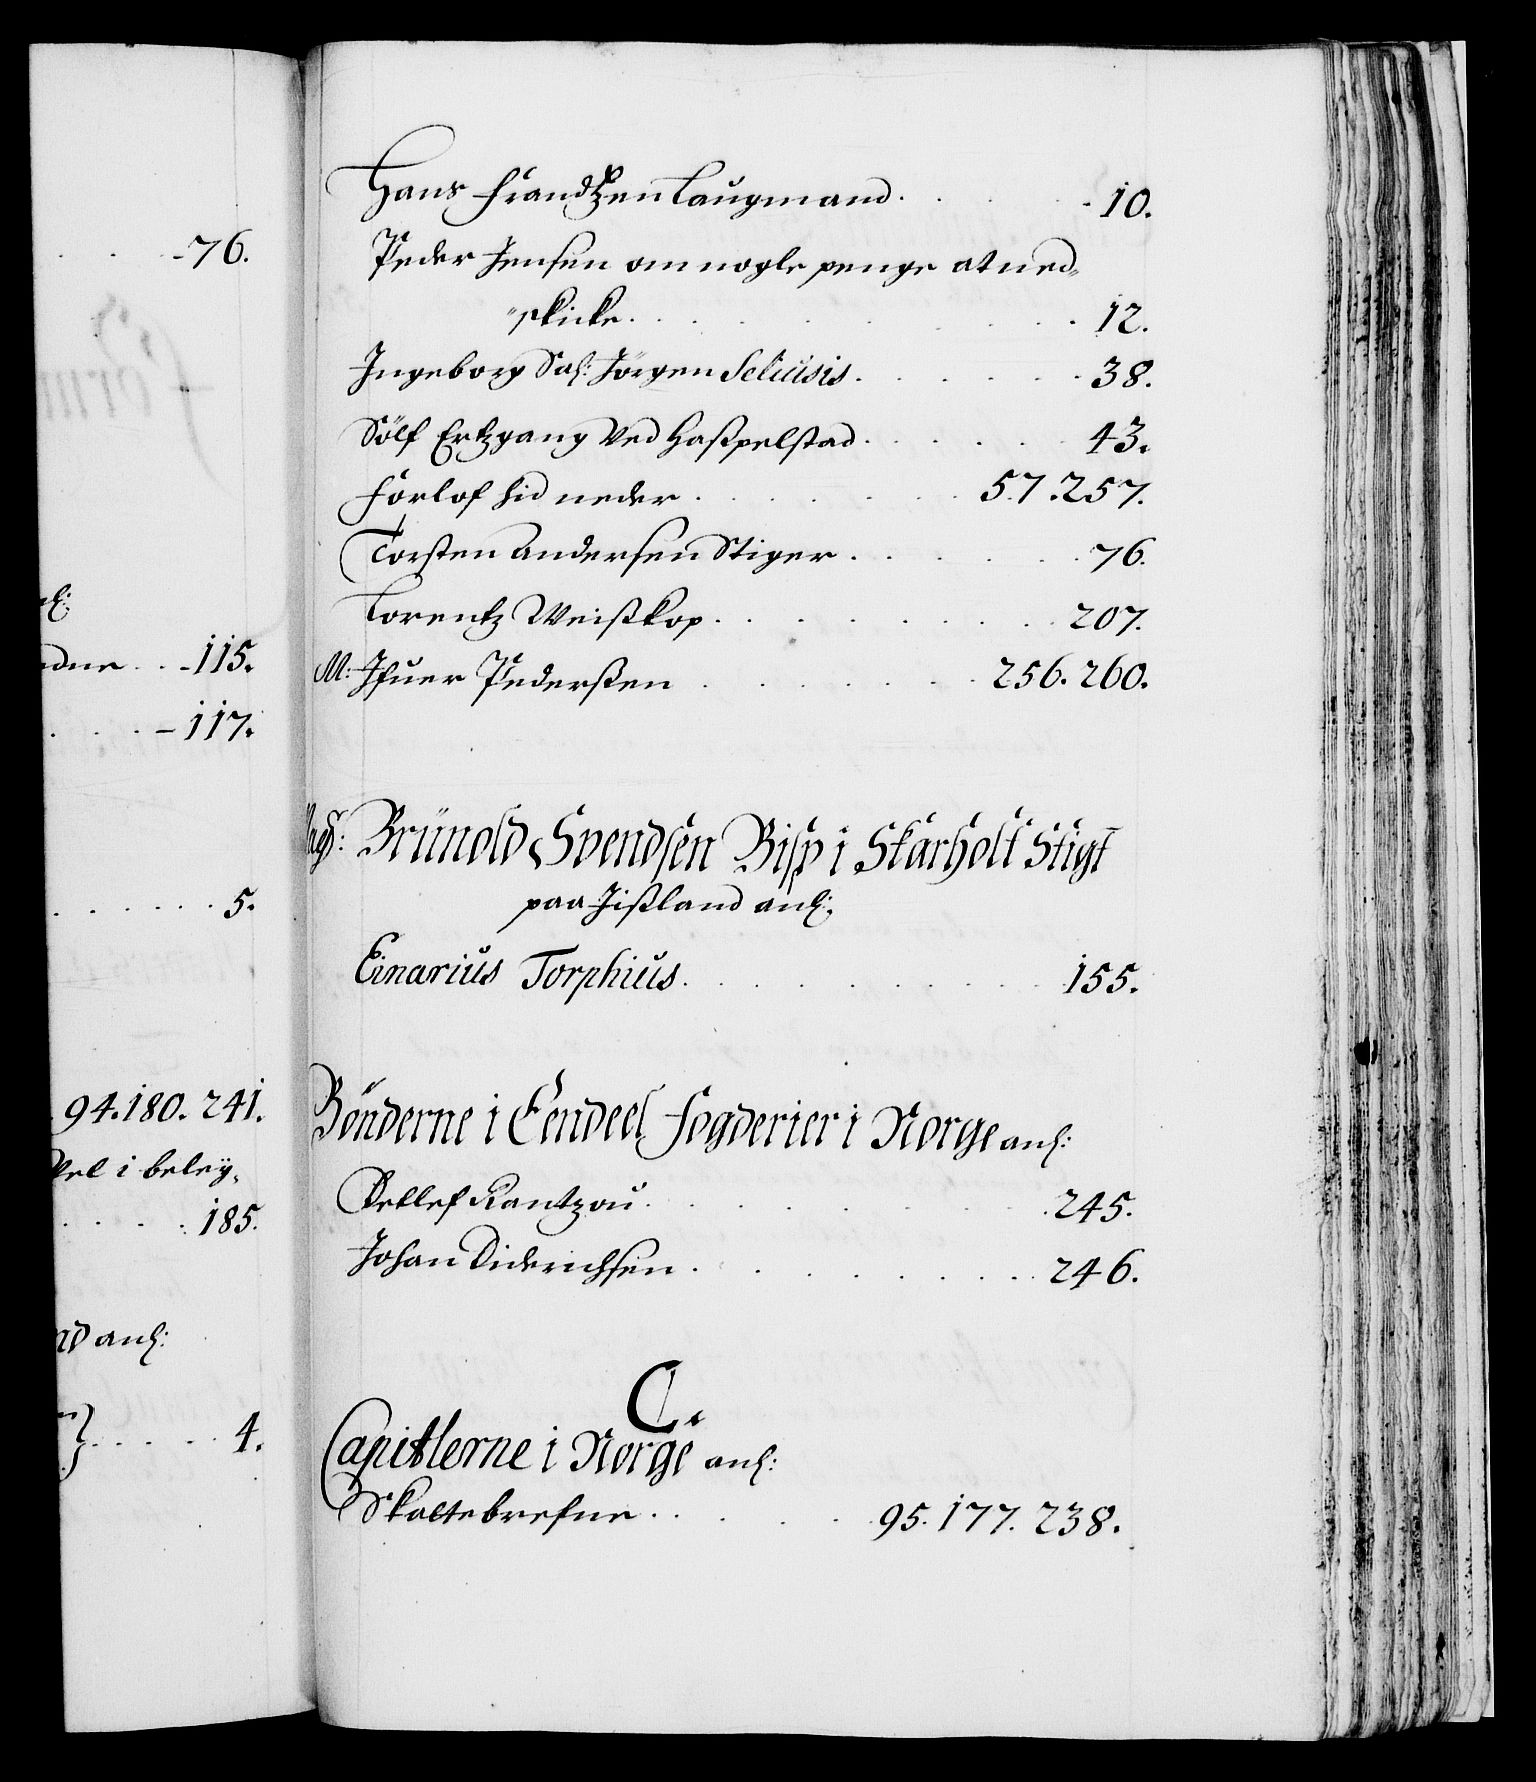 -76.
115.
-117.
5.
94. 180. 241.
Vel i beleÿ,
185.
anl:
4.
Hans Frandtzen Laugmand. 10.
Peder Jensen om nogle penge at ned-
skicke. 12.
Ingeborg Sal: Jörgen Selius is. 38.
Sölf Ertzgang Ved Hasspelstad. 43.
Forlof hid neder. 57. 257.
Torsten Andersen Stiger. 76.
Lorentz Weisskop. 207.
M: Ifuer Pederssen 256. 260.
Brünold Svendsen Bisp i Skarholt Stigt
paa Iissland anl:
Einarius Torphius. 155.
Bönderne i Eendeel Fogderier i Norge anl:
Detlef Rantzou. 245.
Johan Diderichsen. 246.
C.
Capitlerne i Norge anl:
Skattebrefne. 95. 177. 238.